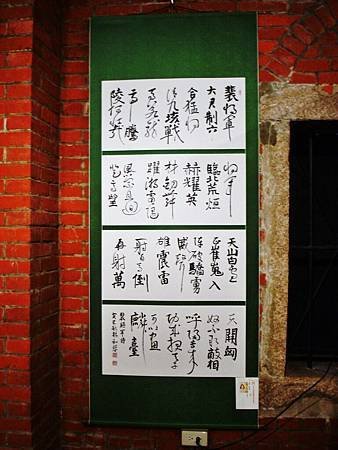 裴將軍
大君制六
合猛將
清九垓戰
馬若龍
虎騰
陵何壯哉
將軍
臨北荒烜
赫耀英
材劍舞
躍游電隨
風縈且迴
登高望
天山白雲
正崔嵬入
陣破驕虜
威聲
雄震雷
射百馬倒
再射萬
夫開匈
奴不敢敵相
呼歸去來
功成報天子
可以畫
麟臺
裴將軍詩